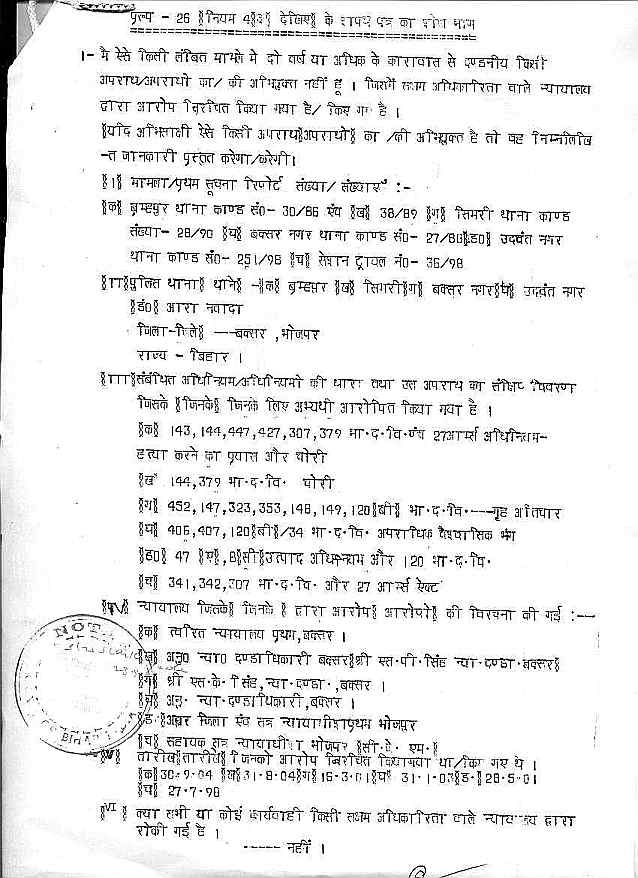 प्रूप - 26 §नियम 4§3§ देखिए§ के शपथ पत्र का शेष भाग
1- मै ऐसे किसी लंबित मामले मे दो वर्ष या अधिक के कारावात से दण्डनीय किसी
अपराध/अपराधो का/ की अभियुक्त नहीं हूं । जिसमें सक्षम अधिकारिता वाले न्यायालय
द्वारा आरोप विरचित किया गया है/ किए गए है ।
§यदि अभिसाक्षी ऐसे किसी अपराध§अपराधो§ का /की अभियुक्त है तो वह निम्नलिखि
-त जानकारी प्रस्तुत करेगा/करेगी।
§1§ मामला/प्रथम सूचना रिपोर्ट संख्या/ संख्याएँ :-
§क§ ब्रम्हपुर थाना काण्ड सं0- 30/86 एंव §ख§ 38/89 §ग§ सिमरी थाना काण्ड
संख्या- 28/90 §घ§ बक्सर नगर थाना काण्ड सं0- 27/86§ड0§ उदवंत नगर
थाना काण्ड सं0- 251/98 §च§ सेशन ट्रायल नं0- 36/98
§II§पुलिस थाना§ थाने§ -§क§ ब्रम्हपुर §ख§ सिमरी§ग§ बक्सर नगर§घ§ उदवंत नगर
§ड0§ आरा नवादा
जिला-जिले§ ---बक्सर ,भोजपुर
राज्य - बिहार ।
§III§संबंधित अधिनियम/अधिनियमो की धारा तथा उस अपराध का संक्षिप्त विवरण
जिसके §जिनके§ जिनके लिए अभ्यर्थी आरोपित किया गया है ।
§क§ 143,144,447,427,307,379 भा·द·वि·एंव 27आर्म्स अधिनियम-
हत्या करने का प्रयास और चोरी
§ख§ 144,379 भा·द·वि· चोरी
§ग§ 452,147,323,353,148,149,120§बी§ भा·द·वि·---गृह अतिचार
§घ§ 406,407,120§बी§/34 भा·द·वि· अपराधिक भंग
§ड0§ 47 §ए§,8§सी§उत्पाद अधिनियम और 120 भा·द·वि·
§च§ 341,342,307 भा·द·वि· और 27 आर्म्स ऐक्ट
§IV§ न्यायालय जिसके§ जिनके § द्वारा आरोप§ आरोपो§ की विरचना की गई :--
§क§ त्वरित न्यायालय प्रथम,बक्सर ।
§ख§ अनु0 न्या0 दण्डाधिकारी बक्सर§श्री एस·पी·सिंह न्या·दण्डा·बक्सर§
§ग§ श्री एस·के·सिंह,न्या·दण्डा·,बक्सर ।
§घ§ अनु· न्या·दण्डाधिकारी,बक्सर ।
§ड·§अपर जिला एंव सत्र न्यायाधीश§प्रथम भोजपुर
§च§ सहायक सत्र न्यायाधीश भोजपुर §सी·जे· एम·§
§V§ तारीख§तारीखे§ जिनको आरोप विरचित किया गया था/किए गए थे ।
§क§30-9-04 §ख§31-8-04§ग§ 16-3-01§घ§ 31-1-03§ड·§ 28-5-01
§च§ 27-7-98
§VI § क्या सभी या कोई कार्यवाही किसी सक्षम अधिकारिता वाले न्यायालय द्वारा
रोकी गई है ।
----- नहीं ।
NOT